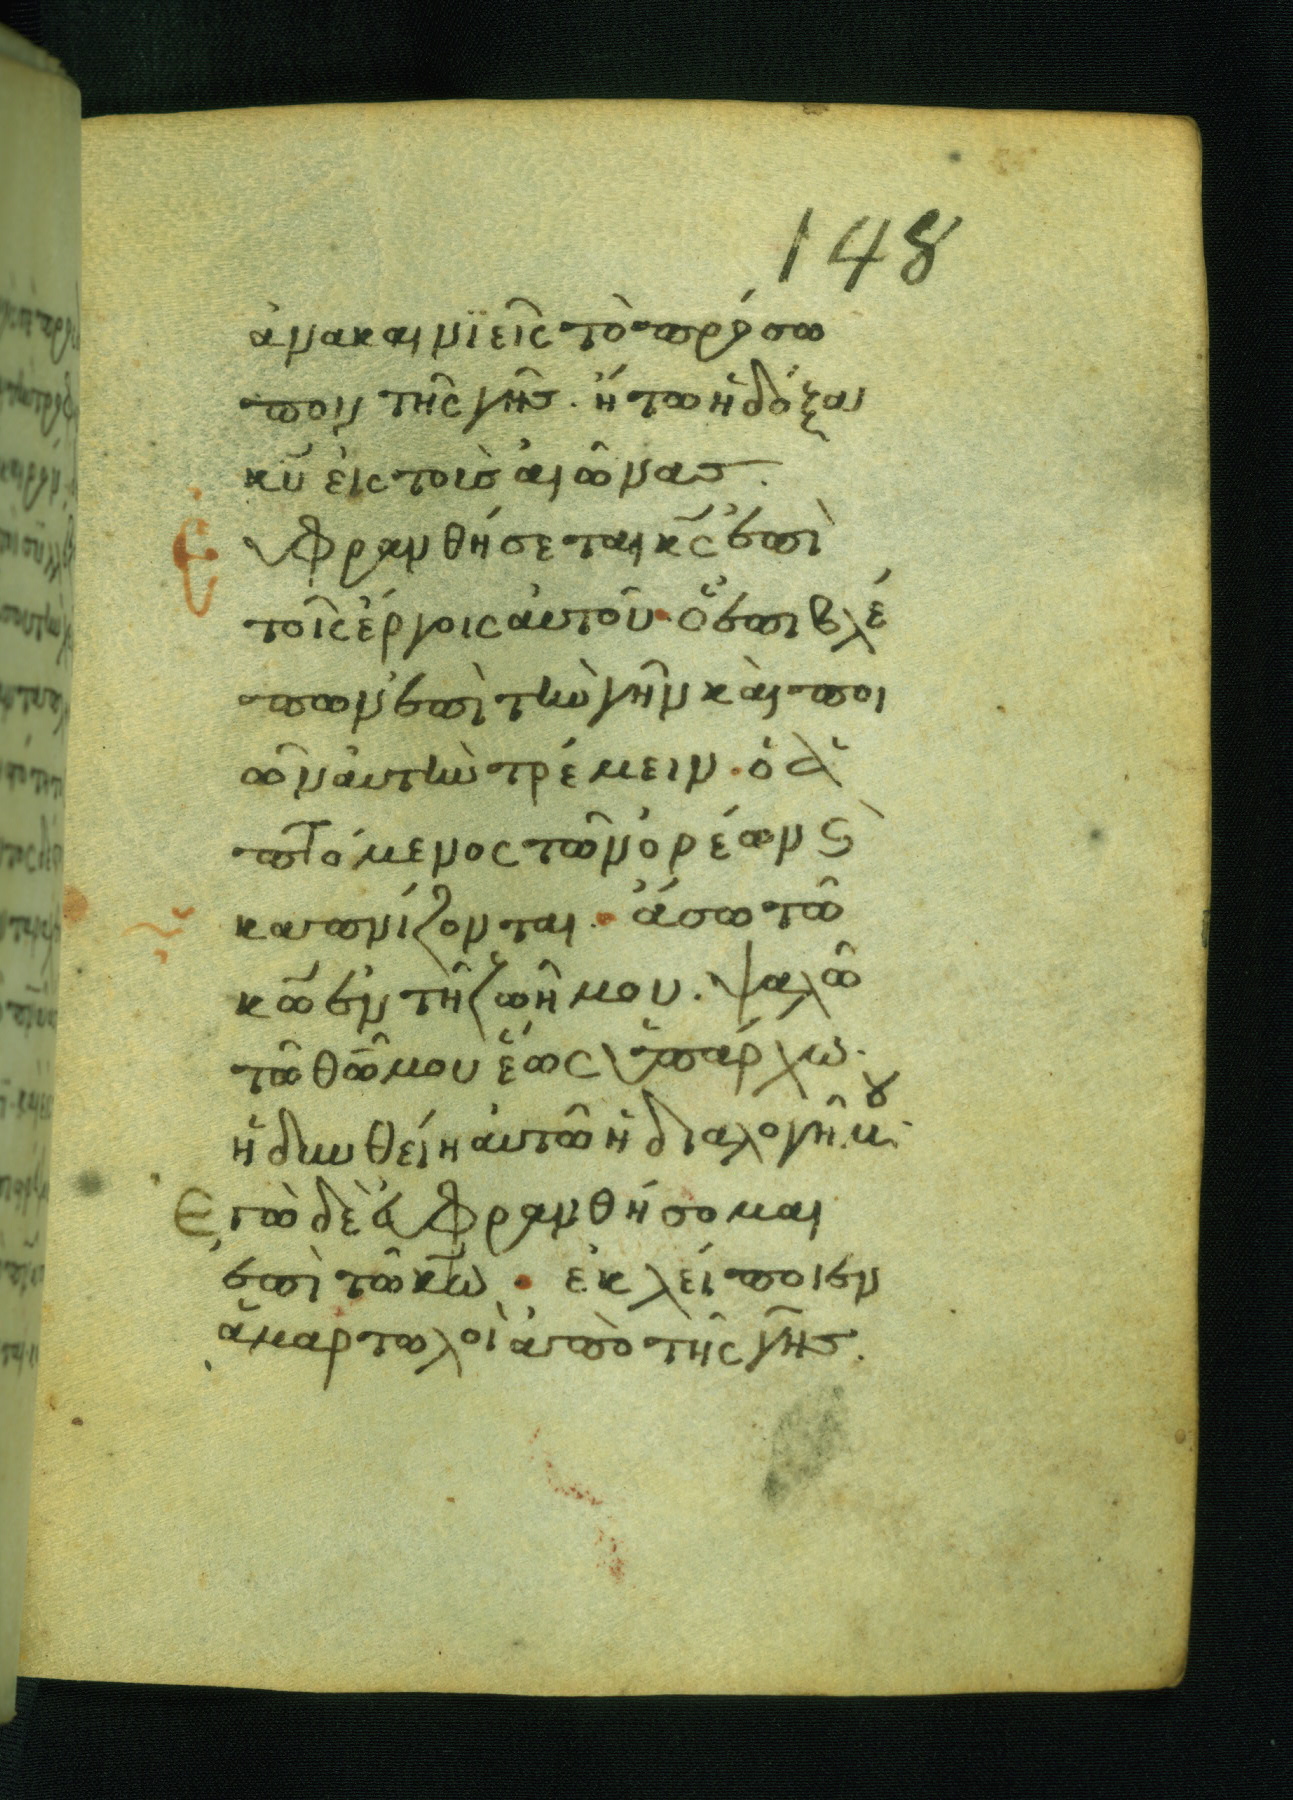 148
ἀνακαινϊεῖς τὸ πρόσω
πον τῆς γῆς. ἤτω ἡ δόξα
κῡ εἰς τοὺσ αἰῶνασ.
Εὐφρανθήσεται κ̄ς ἐπὶ
τοῖς ἔργοις αὐτοῦ· ὁ ἐπιβλέ
πων ἐπὶ τὴν γῆν καὶ ποι
ῶν αὐτὴν τρέμειν· ὁ ἁ
πτόμενος τῶν ὀρέων ϛ̀
καπνίζονται· ἄσω τῶ
κ̄ω ἐν τῆ ζωῆ μου. ψαλῶ
τῶ θ̄ω μου ἕως ὑπάρχω.
ἡδυνθείη αὐτῶ ἡ διαλογῆ μου·
Ἐγὼ δὲ εὐφρανθήσομαι
ἐπὶ τῶ κ̄ω· ἐκλείποιεν
ἁμαρτωλοὶ ἀπὸ τῆς γῆσ.